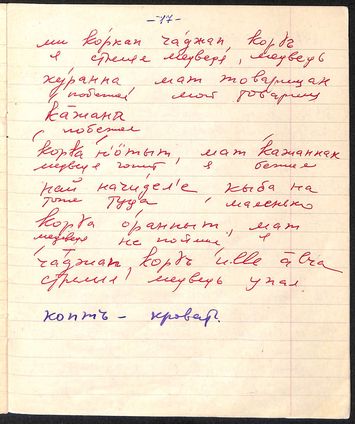 -17-
ми қорқап ча́джап, қорғъ
я стрелял медведя, медведь
кура́нна мат товарищак
побежал мой товарищ
ка́жаны
побежал
қорға н'о́тыт, мат кажаннак
медведя гонит я бежал
най начиделе кыба на
тоже туда маленько
қорға оранныт, мат
медведя не поймал, я
ча́джап, қорғъ илле а̄лча
стрелил, медведь упал.
коптъ – кровать.